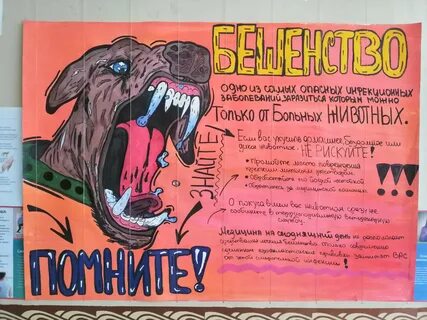 БЕШЕНСТВО
ОДНО ИЗ САМЫХ ОПАСНЫХ ИНФЕКЦИОННЫХ
ЗАБОЛЕВАНИЙ, ЗАРАЗИТЬСЯ КОТОРЫМ МОЖНО
Только от Больных ЖИВОТНЫХ.
ЗНАЙТЕ
Если вас укусило домашнее, бездомное или
дикое животное. НЕ РИСКУЙТЕ!
• Промойте место повреждения
• Обратитесь за медицинской помощью.
О покусавшем вас животном сразу же
сообщите в ветеринарную
службу.
Медицина на сегодняшний день не располагает
средствами лечения бешенства, только
прививки защитят ВАС
от этой смертельной инфекции!
!!!
ПОМНИТЕ!